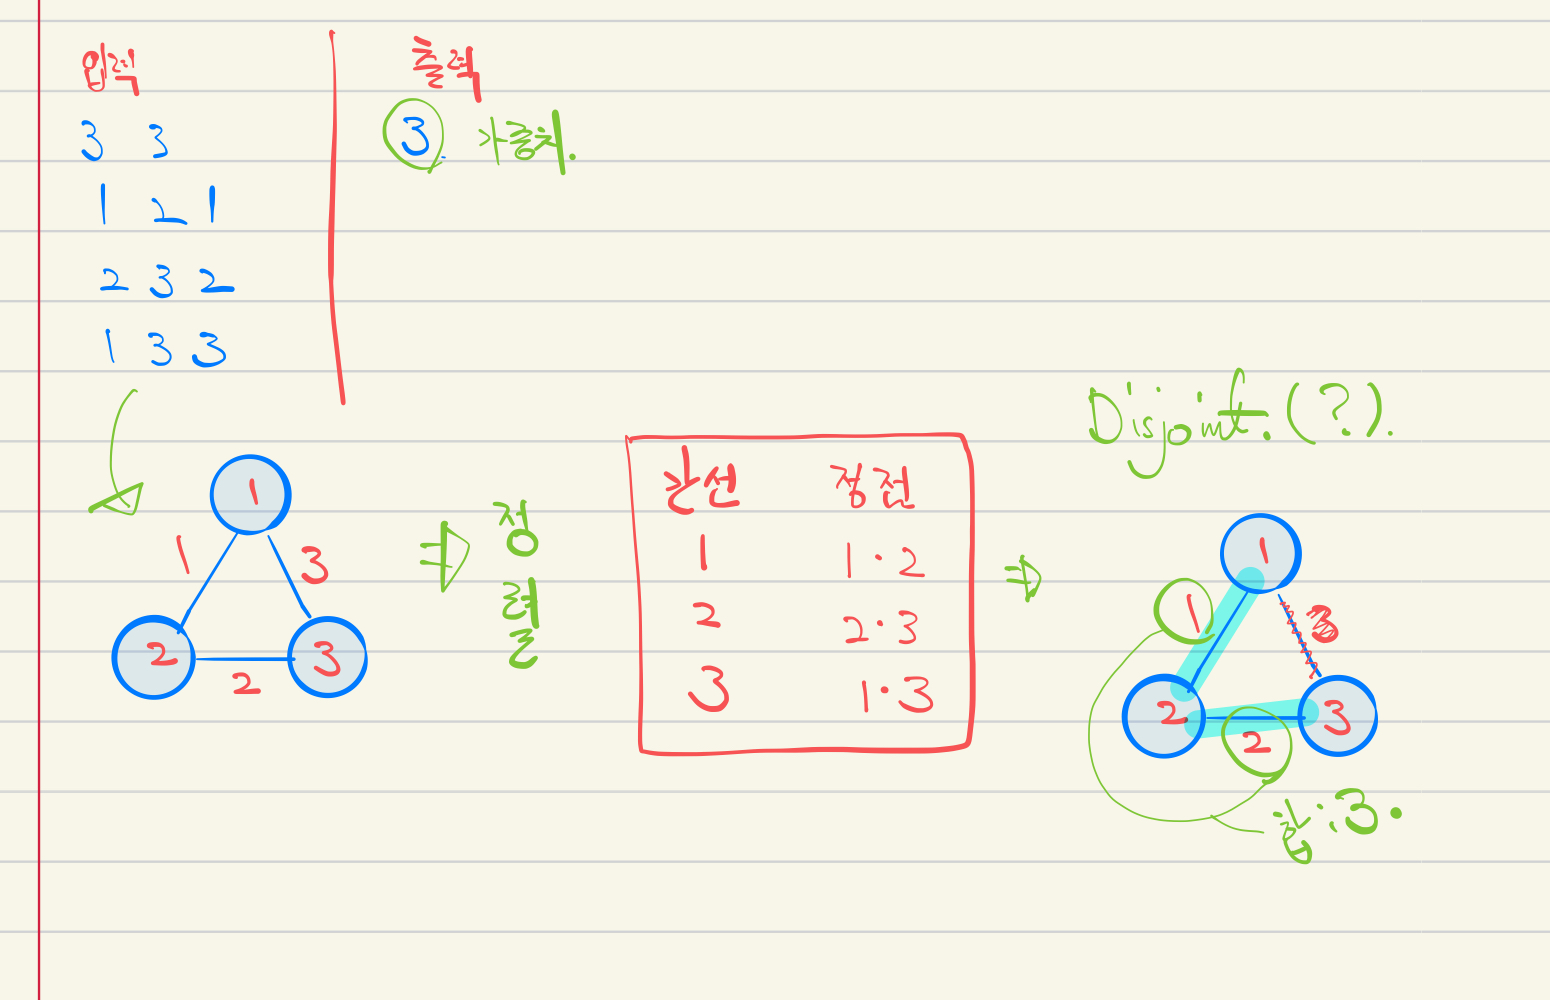 입력
3 3
1 2 1
2 3 2
1 3 3
출력
3. 가중치.
1
1
3
2
3
2
정
렬
간선 정점
1 1·2
2 2·3
3 1·3
Disjoint. (?).
1
1
3
2
3
2
합:3.